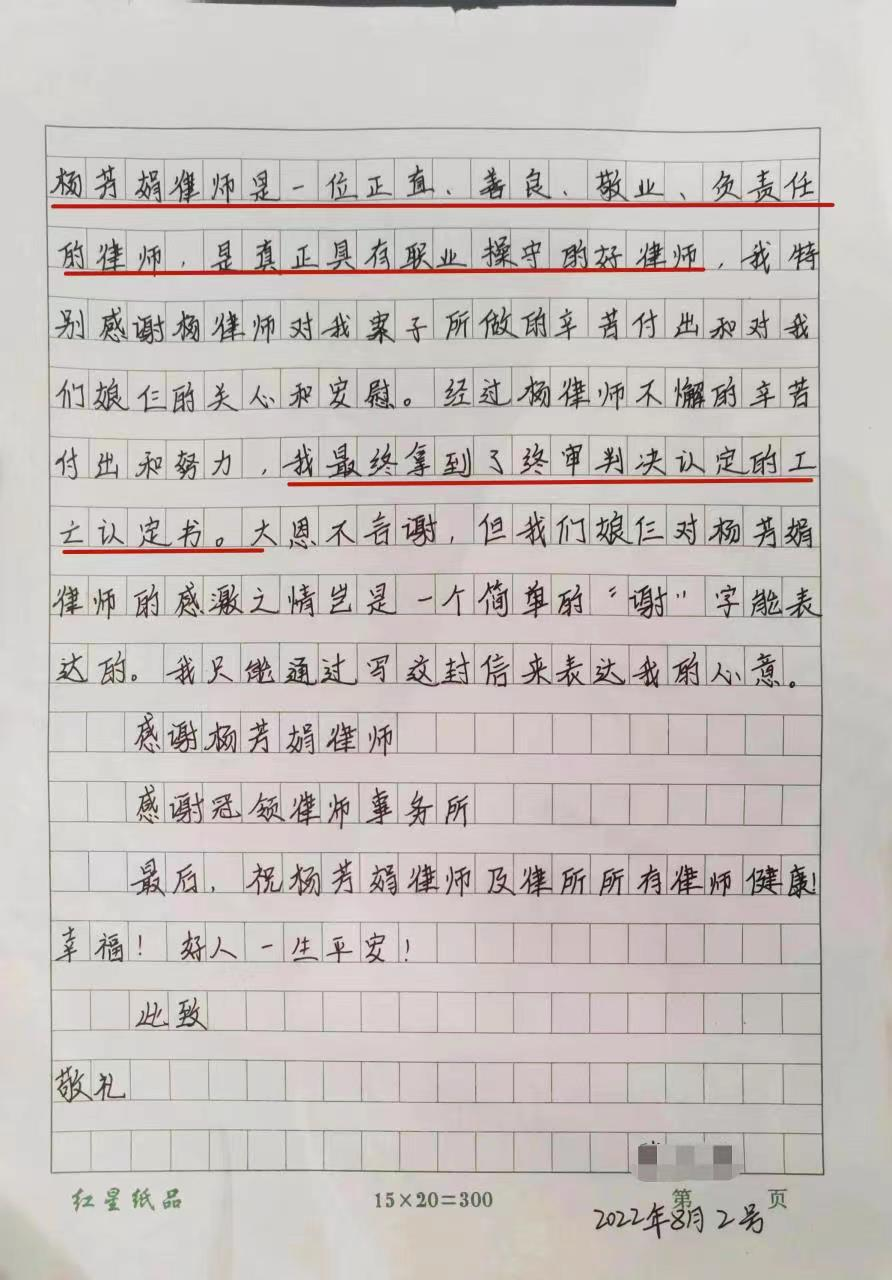 杨芳娟律师是一位正直、善良、敬业、负责任
的律师，是真正具有职业操守的好律师，我特
别感谢杨律师对我案子所做的辛苦付出和对我
们娘仨的关心和安慰。经过杨律师不懈的辛苦
付出和努力，我最终拿到了终审判决认定的工
亡认定书。大恩不言谢，但我们娘仨对杨芳娟
律师的感激之情岂是一个简单的“谢”字能表
达的。我只能通过写这封信来表达我的心意。
感谢杨芳娟律师
感谢冠领律师事务所
最后，祝杨芳娟律师及律所所有律师健康！
幸福！好人一生平安！
此致
敬礼
红星纸品 15×20=300 第 页
2022年8月2号